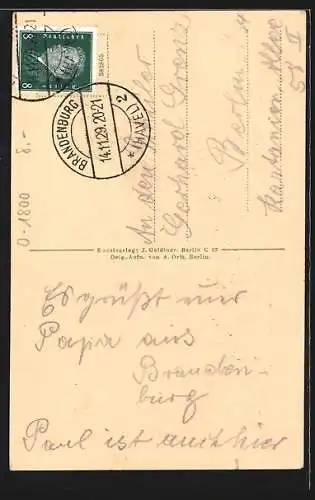 8 Deutsches Reich 8
BRANDENBURG
(HAVEL) 2
14.11.29.20-21
An den Schüler
Gerhard Grenz
Berlin N
Kastanien Allee
58 II
0-1800 8.-
Kunstverlag J. Goldiner, Berlin C 25
Orig.-Aufn. von A. Orth, Berlin.
Es grüßt
Papa aus
Branden-
burg
Paul ist auch hier